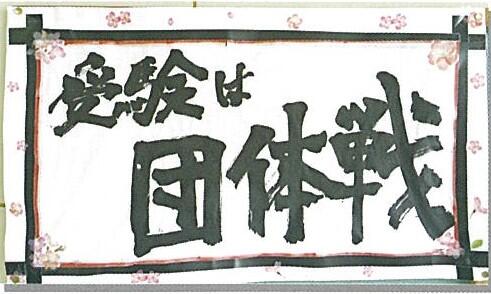 受験は
団体戦